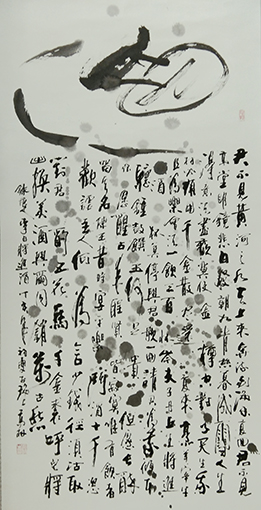 君不見黃河之水天上來奔流到海不復回君不見
高堂明鏡悲白髮朝如青絲暮成雪人生
得意須盡歡莫使金樽空對月天生我
材必有用千金散盡還復來烹羊宰牛
且為樂會須一飲三百杯岑夫子丹丘生將進
酒杯莫停與君歌一曲請君為我傾耳
聽鐘鼓饌玉不足貴但願長醉
不願醒古來聖賢皆寂寞惟有飲者
留其名陳王昔時宴平樂斗酒十千恣
歡謔主人何為言少錢徑須沽取
對君酌五花馬千金裘呼兒將
出換美酒與爾同銷萬古愁
錄李白將進酒